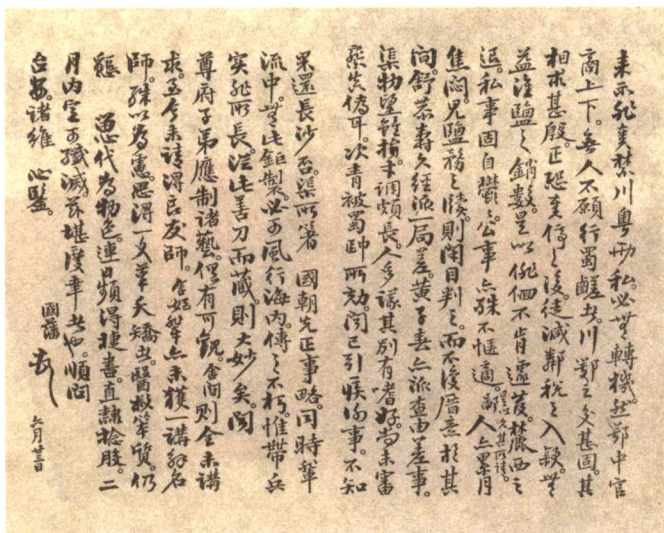 来示非奏禁川粤兩私必無轉機然鄂中官
商上下無人不願行蜀鹺者川鄂之交甚固其
相求甚殷正恐奏停之後徒減鄰税之入疑無
益淮鹽之銷數是以徘徊不肯遽發麓西之
退私事固自鬱鬱公事亦殊不愜適鄙人亦累月
焦悶見鹽務之牘則閉目判之而不復厝意於其
間舒恭壽久經派一局差黃子春亦派查由差事
渠物望雖損手調頗長人多議其別有嗜好尚未審
真偽耳次青被蜀帥所劾聞已引疾事不知
果還長沙否渠所著 國朝先正事略同時輩
流中無此鉅製必可風行海内傳之不朽惟帶兵
實非所長從此善刀而藏則大妙矣聞
尊府子弟應制諸藝俱有可觀舍間則全未講
求至今未請得良友師舍姪輩亦未獲一講解名
師殊以為慮思得一文筆夭矯者醫救笨質仍
懇代為物色連日頻得捷書直隸捻股二
月内定可殲滅亦堪慶幸者也順問
台安諸維 心鑒
國藩頓
六月廿三日